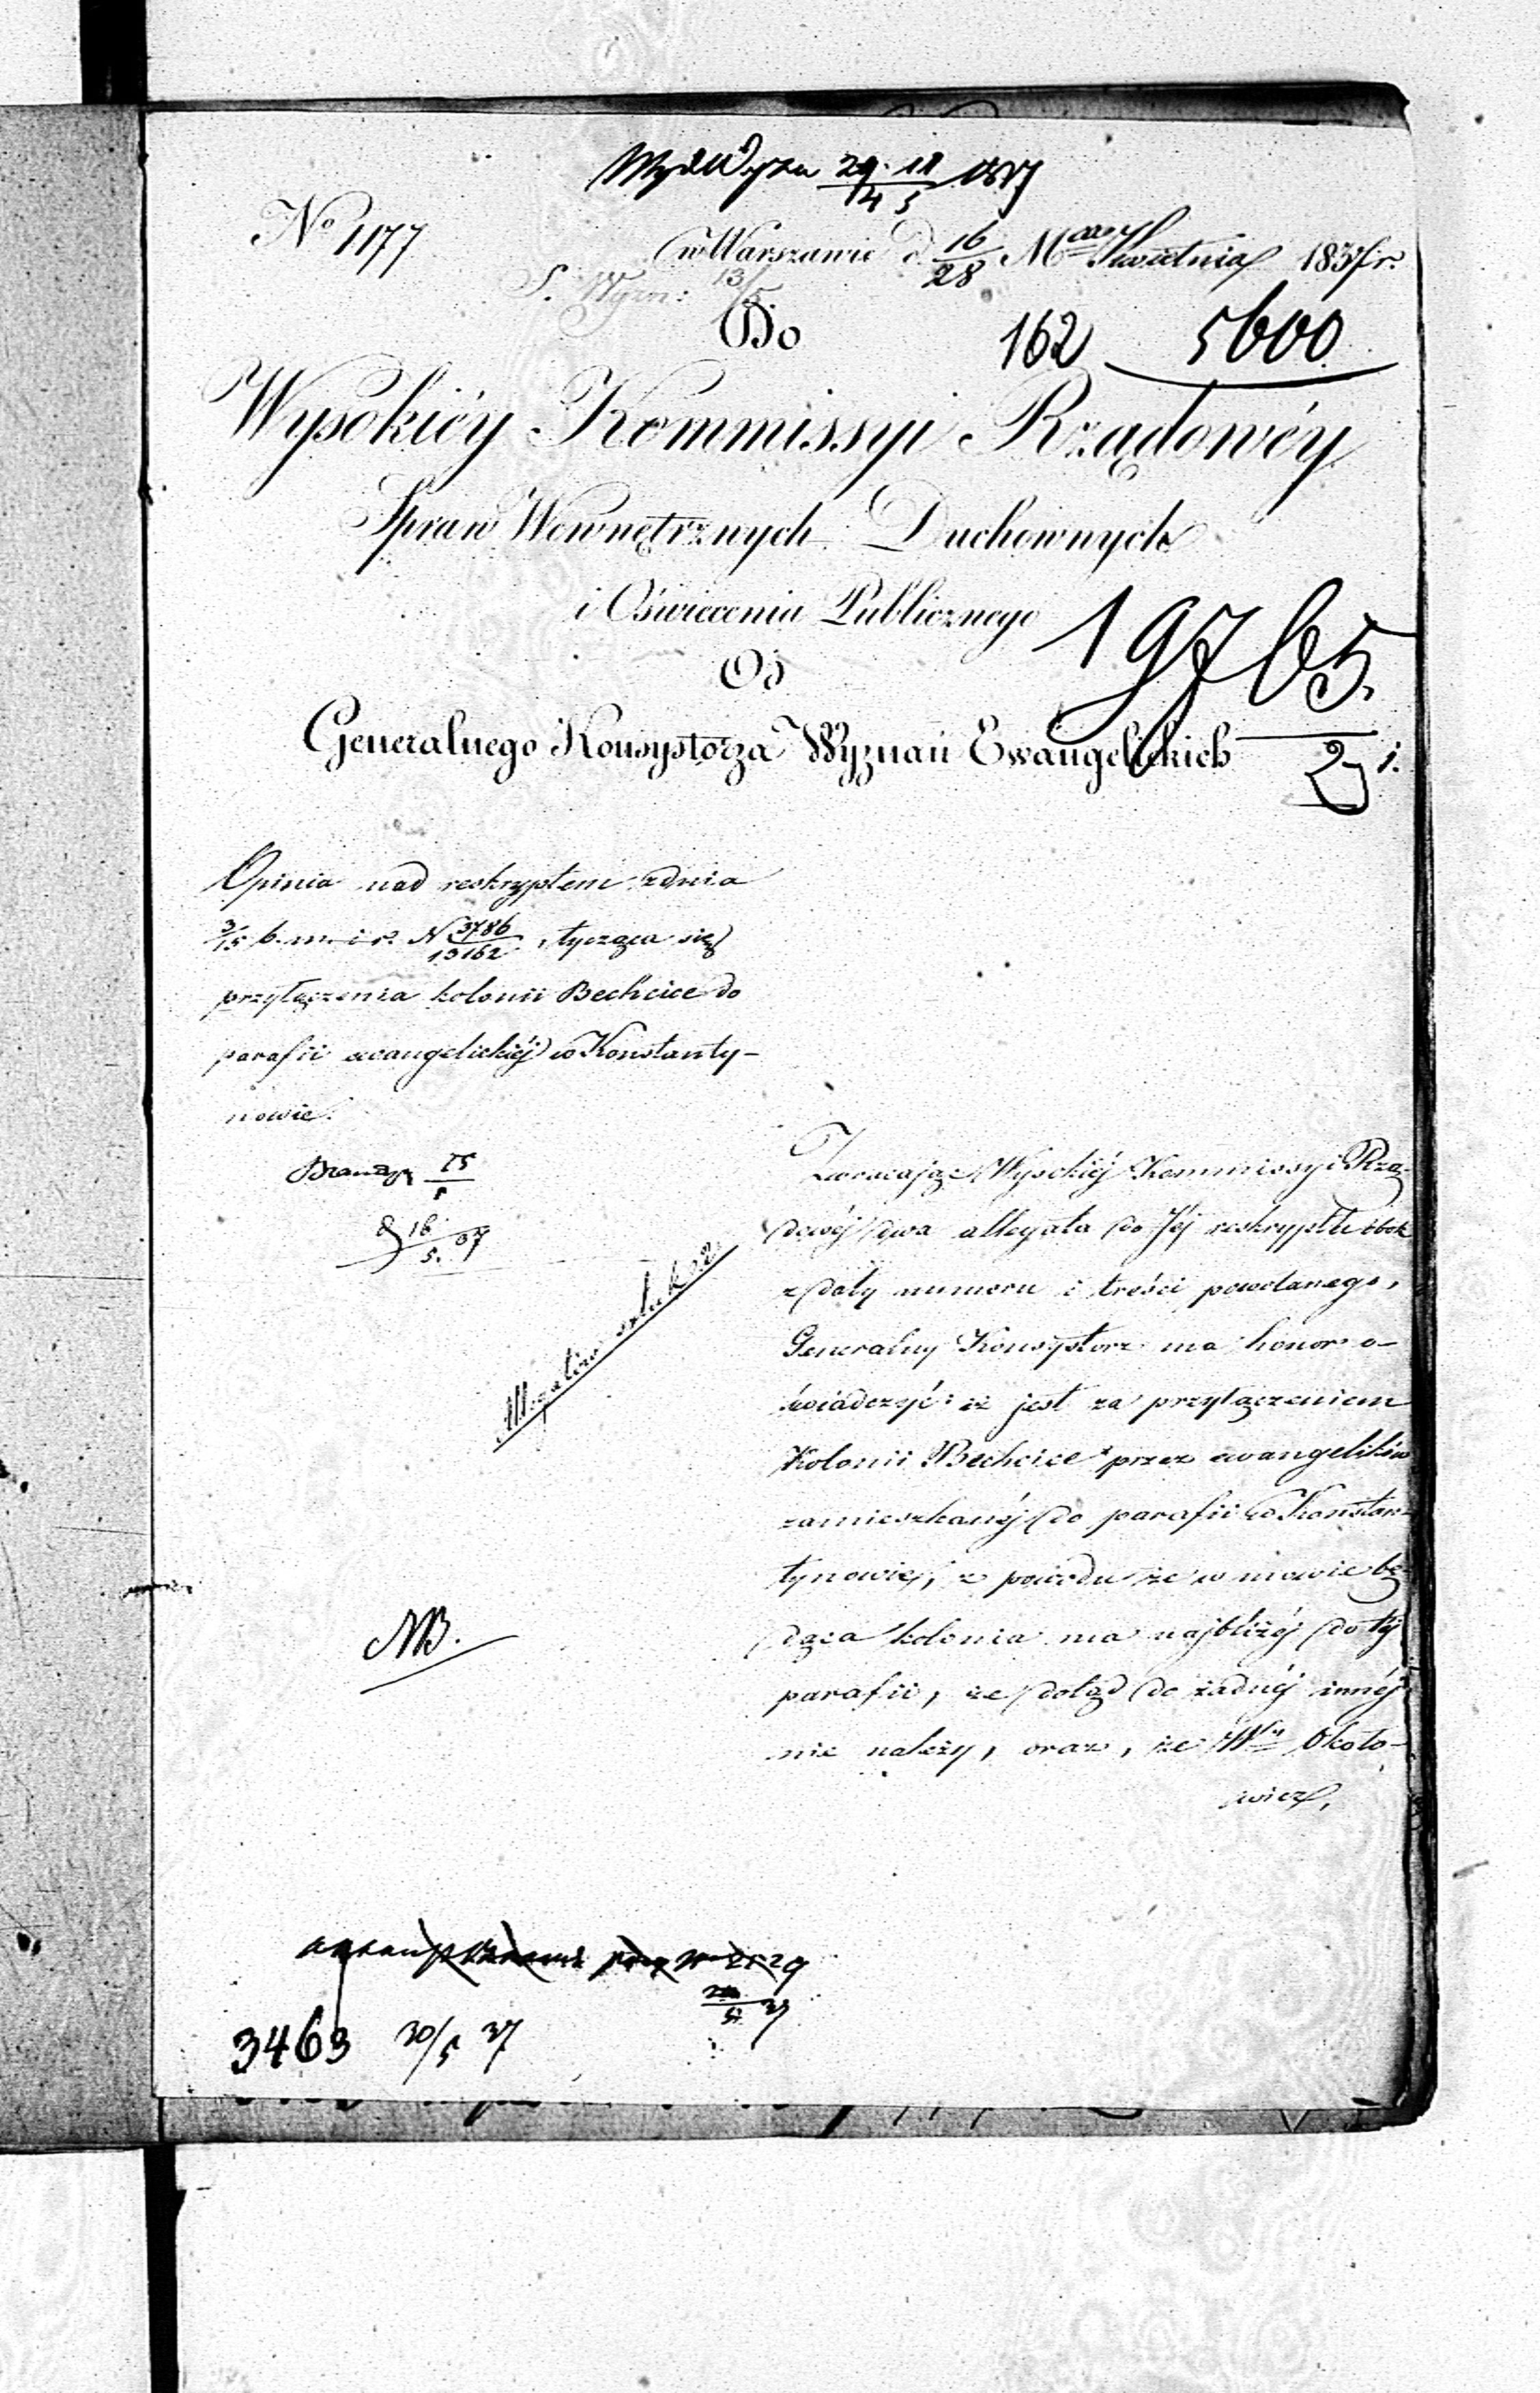 29 · 11
4 5
No 1177
w Warszawie d. 16/28 Kwietnia 1837 r.
S. Wyzn: 13/5
Do
162 5600
Wysokiéy Kommissyi Rządowéy
Spraw Wewnętrznych Duchownych
i Oświecenia Publicznego
19765.
Od
Generalnego Konsystorza Wyznań Ewangelickich
Opinia nad reskryptem z dnia
3/15 b. m. i r. N 3786/13162, tycząca się
przyłączenia kolonii Bechcice do
parafii ewangelickiéj w Konstanty-
nowie.
15
5
16
5. 37
Zwracając Wysokiéj Kommissyi Rzą-
dowéj dwa allegata do Jéj reskryptu obok
z daty numeru i treści powołanego,
Generalny Konsystorz ma honor o-
świadczyć: iż jest za przyłączeniem
Kolonii Bechcice przez ewangelików
zamieszkanéj do parafii w Konstan-
tynowie, z powodu że w mowie bę-
dąca kolonia ma najbliżéj do téj
parafii, że dotąd do żadnéj innéj
nie należy, oraz, że Wny Około-
wicz,
NB.
3463 30/5 37